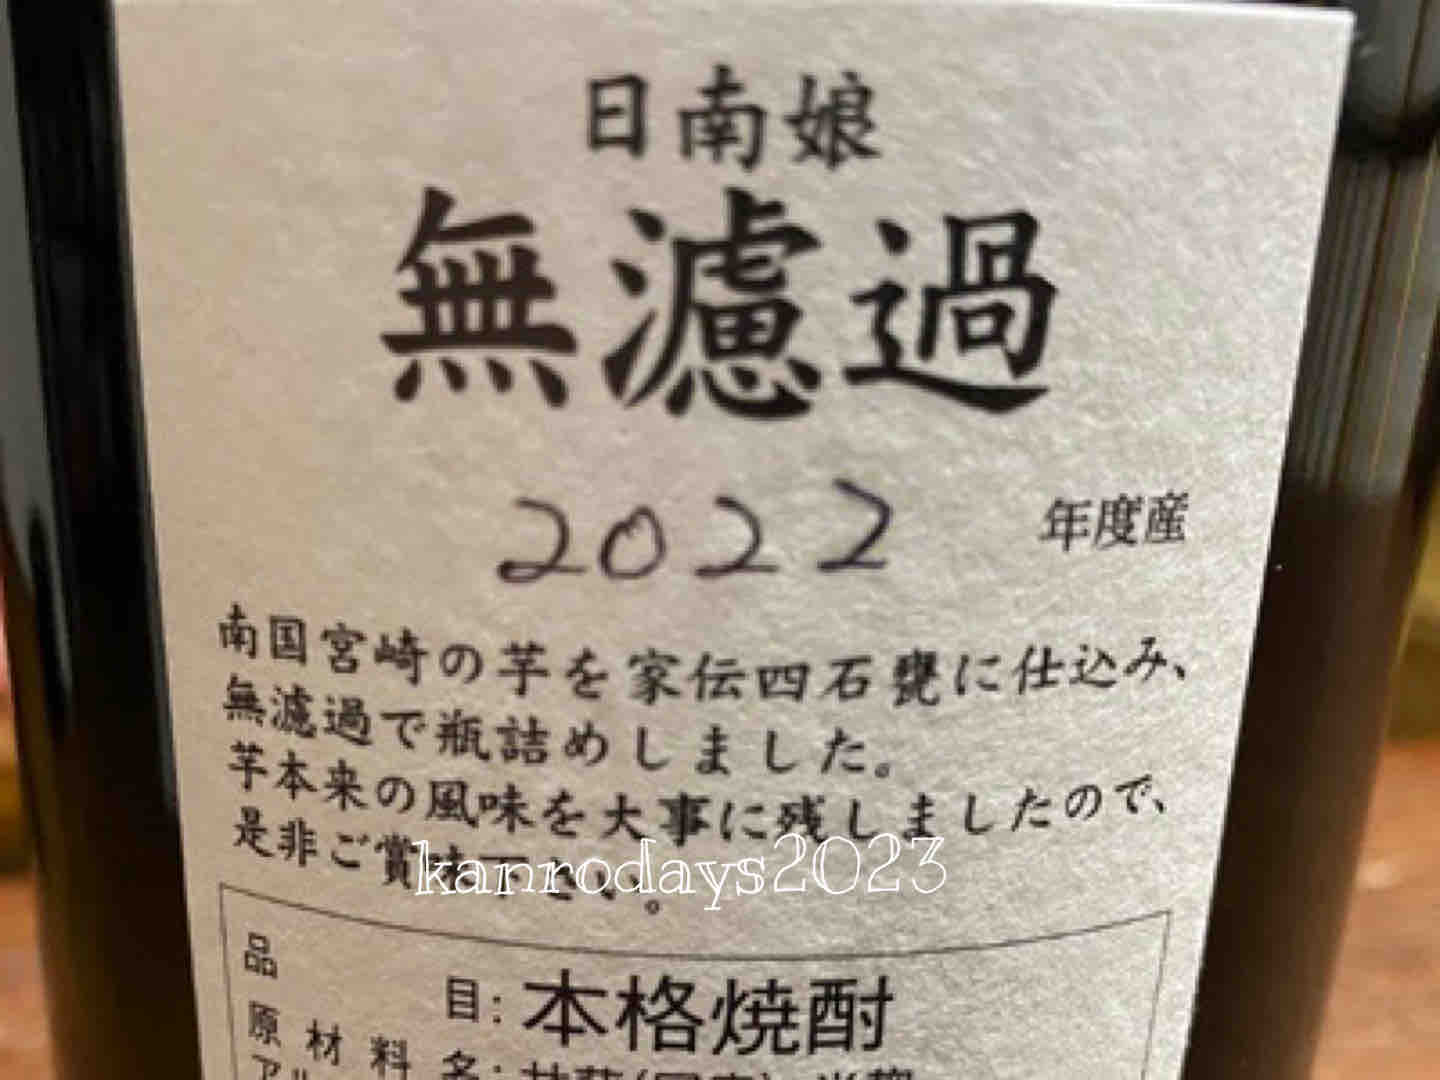 日南娘
無濾過
2022 年度産
南国宮崎の芋を家伝四石甕に仕込み、
無濾過で瓶詰めしました。
芋本来の風味を大事に残しましたので、
是非ご賞味下さい。
kanrodays2023
品目:本格焼酎
原材料名: